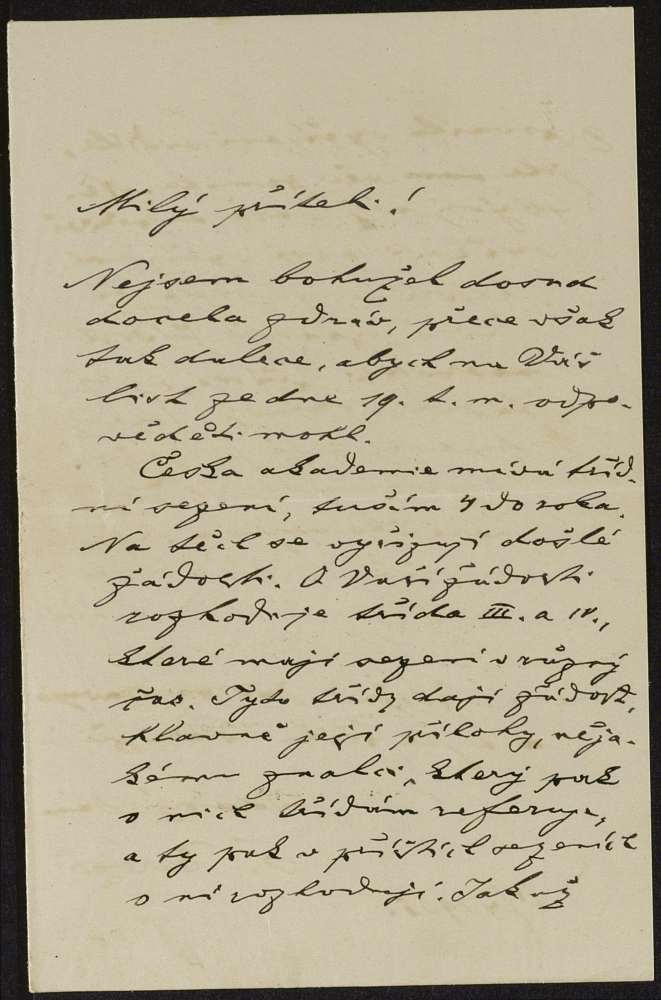 Milý příteli!
Nejsem bohužel dosud
docela zdráv, přece však
tak dalece, abych na Váš
list ze dne 19. t. m. odpo-
věděti mohl.
Česka akademie mívá tříd-
ní sezení, tuším 4 do roka.
Na těch se vyřizují došlé
žádosti. O Vaší žádosti
rozhoduje třída III. a IV.,
které mají sezení v různý
čas. Tyto třídy dají žádost,
hlavně její přílohy, něja-
kému znalci, který pak
o nich třídám referuje,
a ty pak v příštích sezeních
o ní rozhodují. Jak už